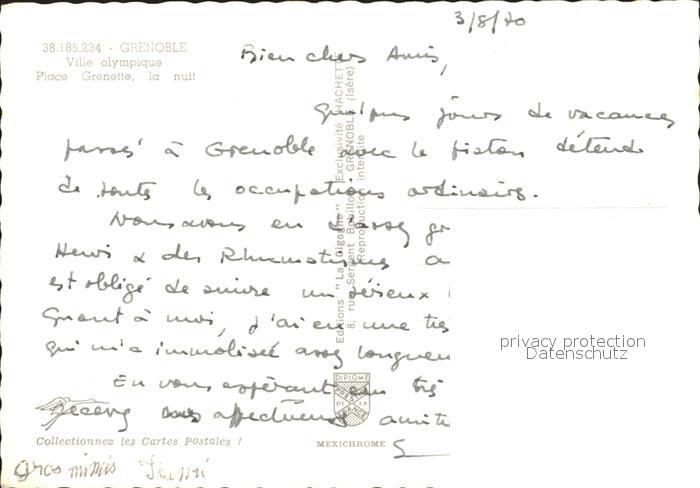 38.185.234 - GRENOBLE
Ville olympique
Place Grenette, la nuit
3/8/70
Bien chers Amis,
Quelques jours de vacances
passés à Grenoble avec le piston détende
de toutes les occupations ordinaires.
Nous avons eu d'assez gr
Henri a des Rhumatismes a
est obligé de suivre un sérieux
Quant à moi, j'ai eu une très
qui m'a immobilisée assez longuem
En vous espérant en très
recevez nos affectueuses amiti
Editions "La Cigogne" Exclusivité HACHETTE
8, rue Sergent Bobillot GRENOBLE (Isère)
Reproduction interdite
privacy protection
Datenschutz
DIPLOME
PRES
DE LA
FRANCE
Collectionnez les Cartes Postales !
MEXICHROME
gros mimis Henri